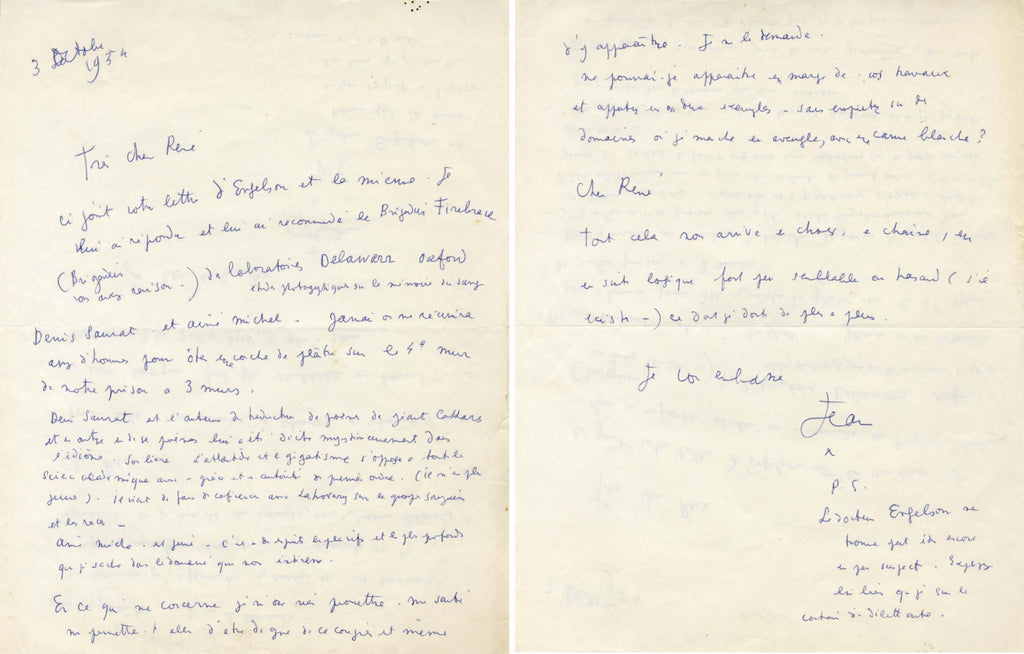 3 Octobre
1954
Très cher René
ci joint votre lettre d'Engelson et la mienne. Je
lui ai répondu et lui ai recommandé le Brigadier Firebrace
(Brigadier
vous avez raison -) de laboratoires Delawarr Oxford
études photographiques sur la mémoire du sang
Denis Saurat et aimé Michel - Jamais on ne réunira
assez d'hommes pour ôter une couche de plâtre sur le 4e mur
de notre prison à 3 murs.
Denis Saurat est l'auteur de traduction de poèmes de
et en outre de poèmes lui a été dicté mystérieusement dans
l'idiome. Son livre l'atlantide et le gigantisme s'oppose à toute la
science académique avec grâce et autorité de premier ordre. (il n'est plus
jeune). Il vient de faire des conférences avec Lahovary sur les groupes sanguins
et les races -
Aimé Michel est jeune - C'est un des esprits les plus vifs et les plus profonds
que je sache dans le domaine qui nous intéresse.
En ce qui me concerne je n'ose rien promettre. ma santé
me permettra t elle d'être digne de ce congrès et même
d'y apparaître. Je me le demande.
ne pourrai-je apparaître en marge de vos travaux
et apporter un ou deux exemples - sans empiéter sur des
domaines où je marche en aveugle, avec une canne blanche?
Cher René
tout cela nous arrive en choses, en chaîne, en
une suite logique fort peu semblable au hasard (s'il
existe -) ce dont je doute de plus en plus.
Je vous embrasse
Jean
P.S.
Le docteur Engelson me
trouve peut être encore
un peu suspect. Expliquez
lui bien que je suis le
contraire d'un dilettante.